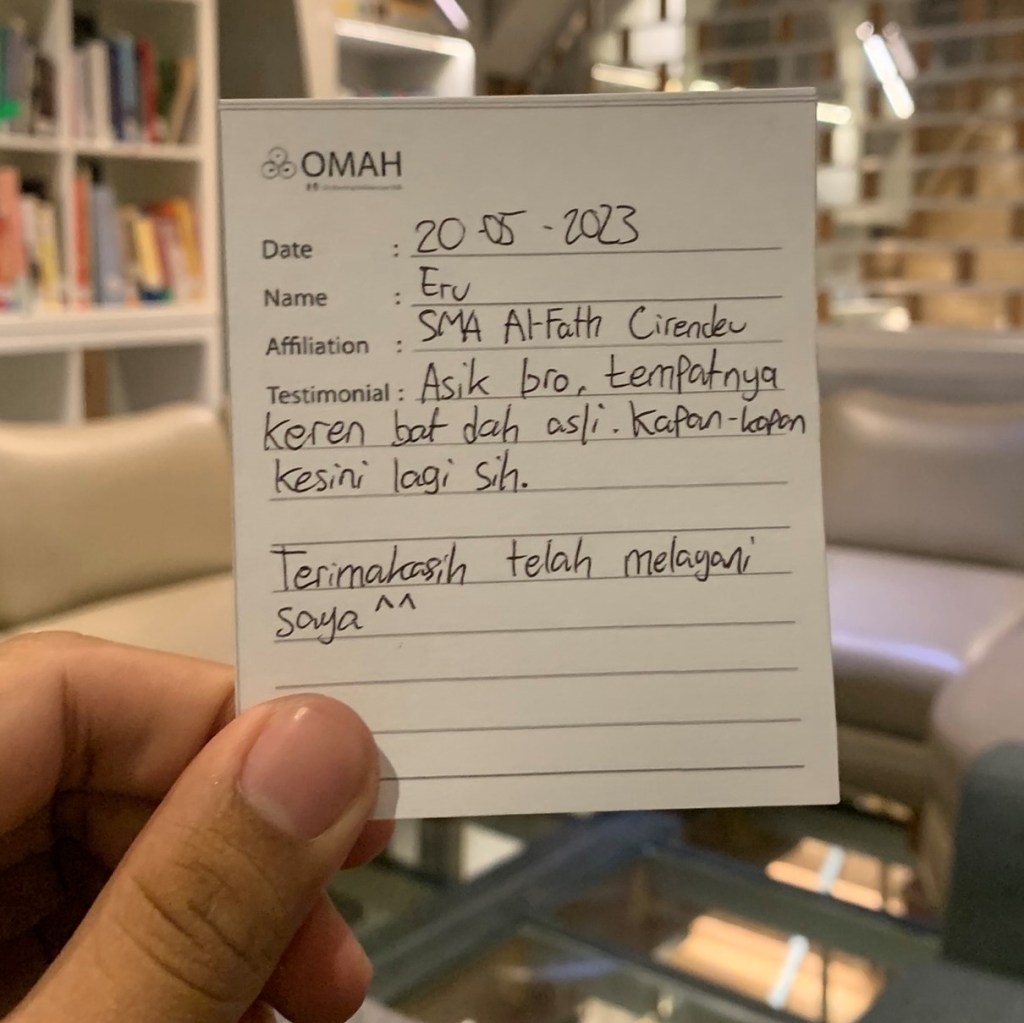 OMAH
Date : 20-05-2023
Name : Eru
Affiliation : SMA Al-Fath Cirendeu
Testimonial : Asik bro, tempatnya
keren bat dah asli. Kapan-kapan
kesini lagi sih.
Terimakasih telah melayani
saya ^^